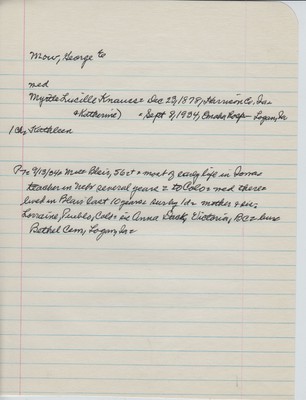 Mow, George E
med
Myrtle Lucille Knauss = Dec 23, 1878, Harrison Co, Ia =
+ Katherine) = Sept 8, 1934, Omaha Hosp - Logan, Ia
1 Ch, Kathleen
9/13/34 = Blair, 56 = most of early life in Iowa
teacher in Nebr several years = to Colo = med there =
lived in Blair last 10 years = surv by 1d = mother + sis,
Lorraine, Pueblo, Colo = sis Anna, Victoria, BC =
Bethel Cem, Logan, Ia =